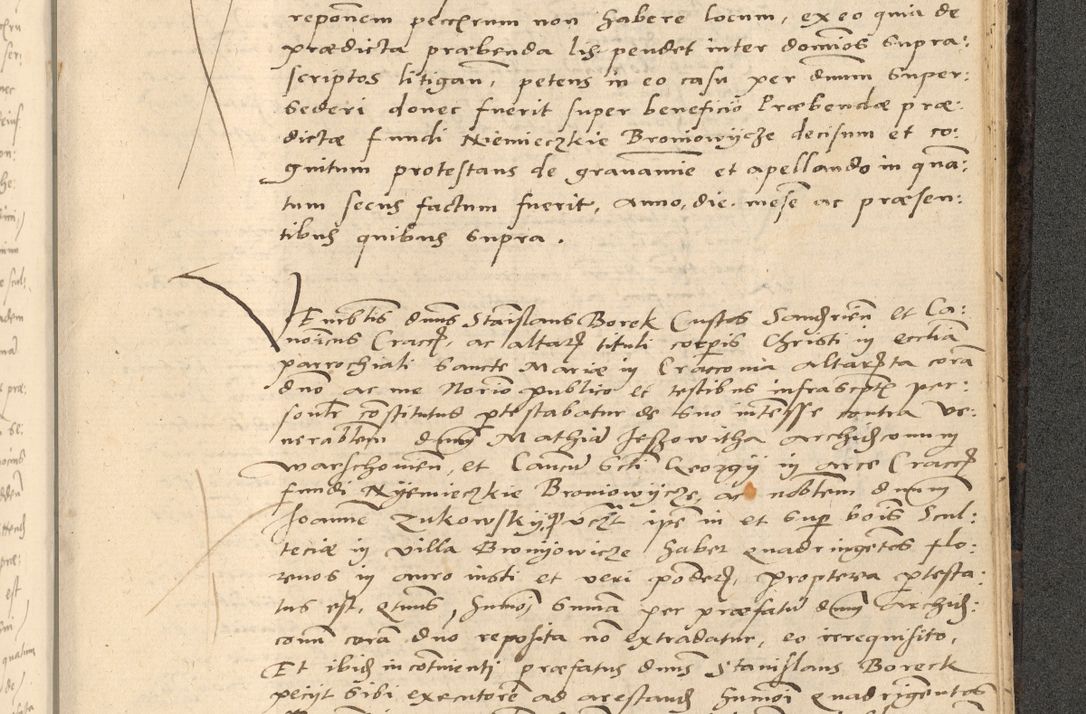 reponem peccxrum non habere locum, ex eo quia de
prædicta præbenda lis pendet inter dominos supra:
scriptos litigan, petens in eo casu per dnum super:
sederi donec fuerit super beneficio Præbendæ præ:
dictæ fundi Niemieczkie Broniowycze decisum et co:
gnitum protestans de gravamine et apellando in quan:
tum secus factum fuerit, anno, die, mense ac præsen:
tibus quibus supra.
VEnerabilis dnus Stanislaus Borek Custos Sandirien et Ca:
nonicus Craccoviensis, ac altaris tituli corporis Christi in ecclia
parrochiali Sancte Mariæ in Cracconia altarista cora
dno ac me Notario publico et testibus infrascriptis per:
sonlr constitutus protestabatur de suo interesse contra ve:
nerabilem dnum Mathiam Jeszowitha archidiaconum
Warschowien, et Canonicum Scti Georgii in arce Cracc
fundi Nyemieczkie Broniowycze, ac nobilem dnum
Joannem Zukowsky, ipse in et super bonis Scul:
teciæ in villa Bronyowicze habet quadringentos flo:
renos in auro iusti et veri ponderis, propterea protesta:
tus est, quatenus, summa per præfatum dnum archidi:
conum coram dno reposita non extradatur, eo irrequisito,
Et ibidem in continenti præfatus dnus Stanislaus Boreck
peciit sibi executorem ad arestandum summam quadrigentos